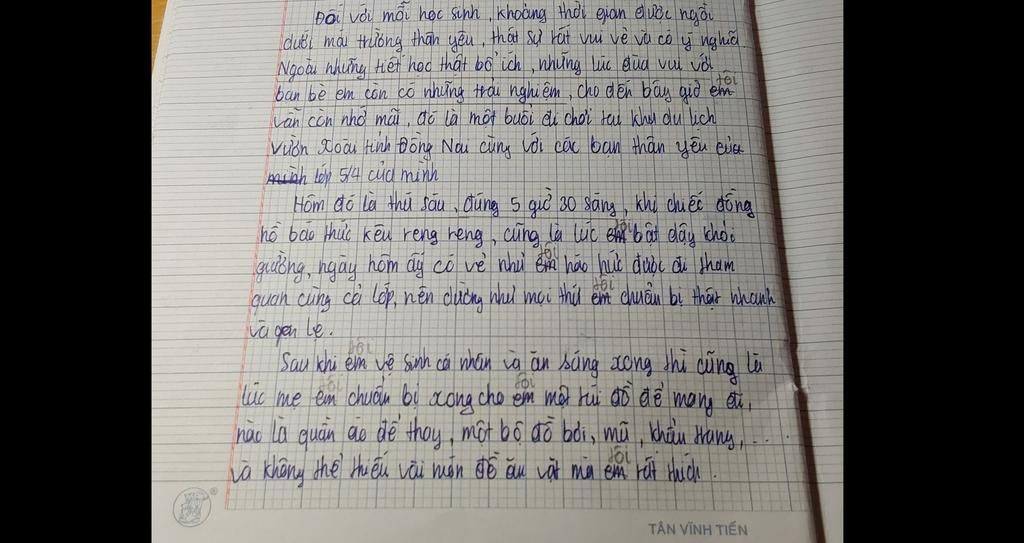 Đối với mỗi học sinh, khoảng thời gian được ngồi
dưới mái trường thân yêu, thật sự rất vui vẻ và có ý nghĩa.
Ngoài những tiết học thật bổ ích, những lúc đùa vui với
bạn bè em còn có những trải nghiệm, cho đến bây giờ em tôi
vẫn còn nhớ mãi, đó là một buổi đi chơi tại khu du lịch
Vườn Xoài tỉnh Đồng Nai cùng với các bạn thân yêu của
mình lớp 5/4 của mình
Hôm đó là thứ sáu, đúng 5 giờ 30 sáng, khi chiếc đồng
hồ báo thức kêu reng reng, cũng là lúc em tôi bật dậy khỏi
giường, ngày hôm ấy có vẻ như em tôi háo hức được đi tham
quan cùng cả lớp, nên dường như mọi thứ em tôi chuẩn bị thật nhanh
và gọn lẹ.
Sau khi em tôi vệ sinh cá nhân và ăn sáng xong thì cũng là
lúc mẹ em tôi chuẩn bị xong cho em tôi một túi đồ để mang đi,
nào là quần áo để thay, một bộ đồ bơi, mũ, khẩu trang, ...
và không thể thiếu vài món đồ ăn vặt mà em tôi rất thích.
TÂN VĨNH TIẾN